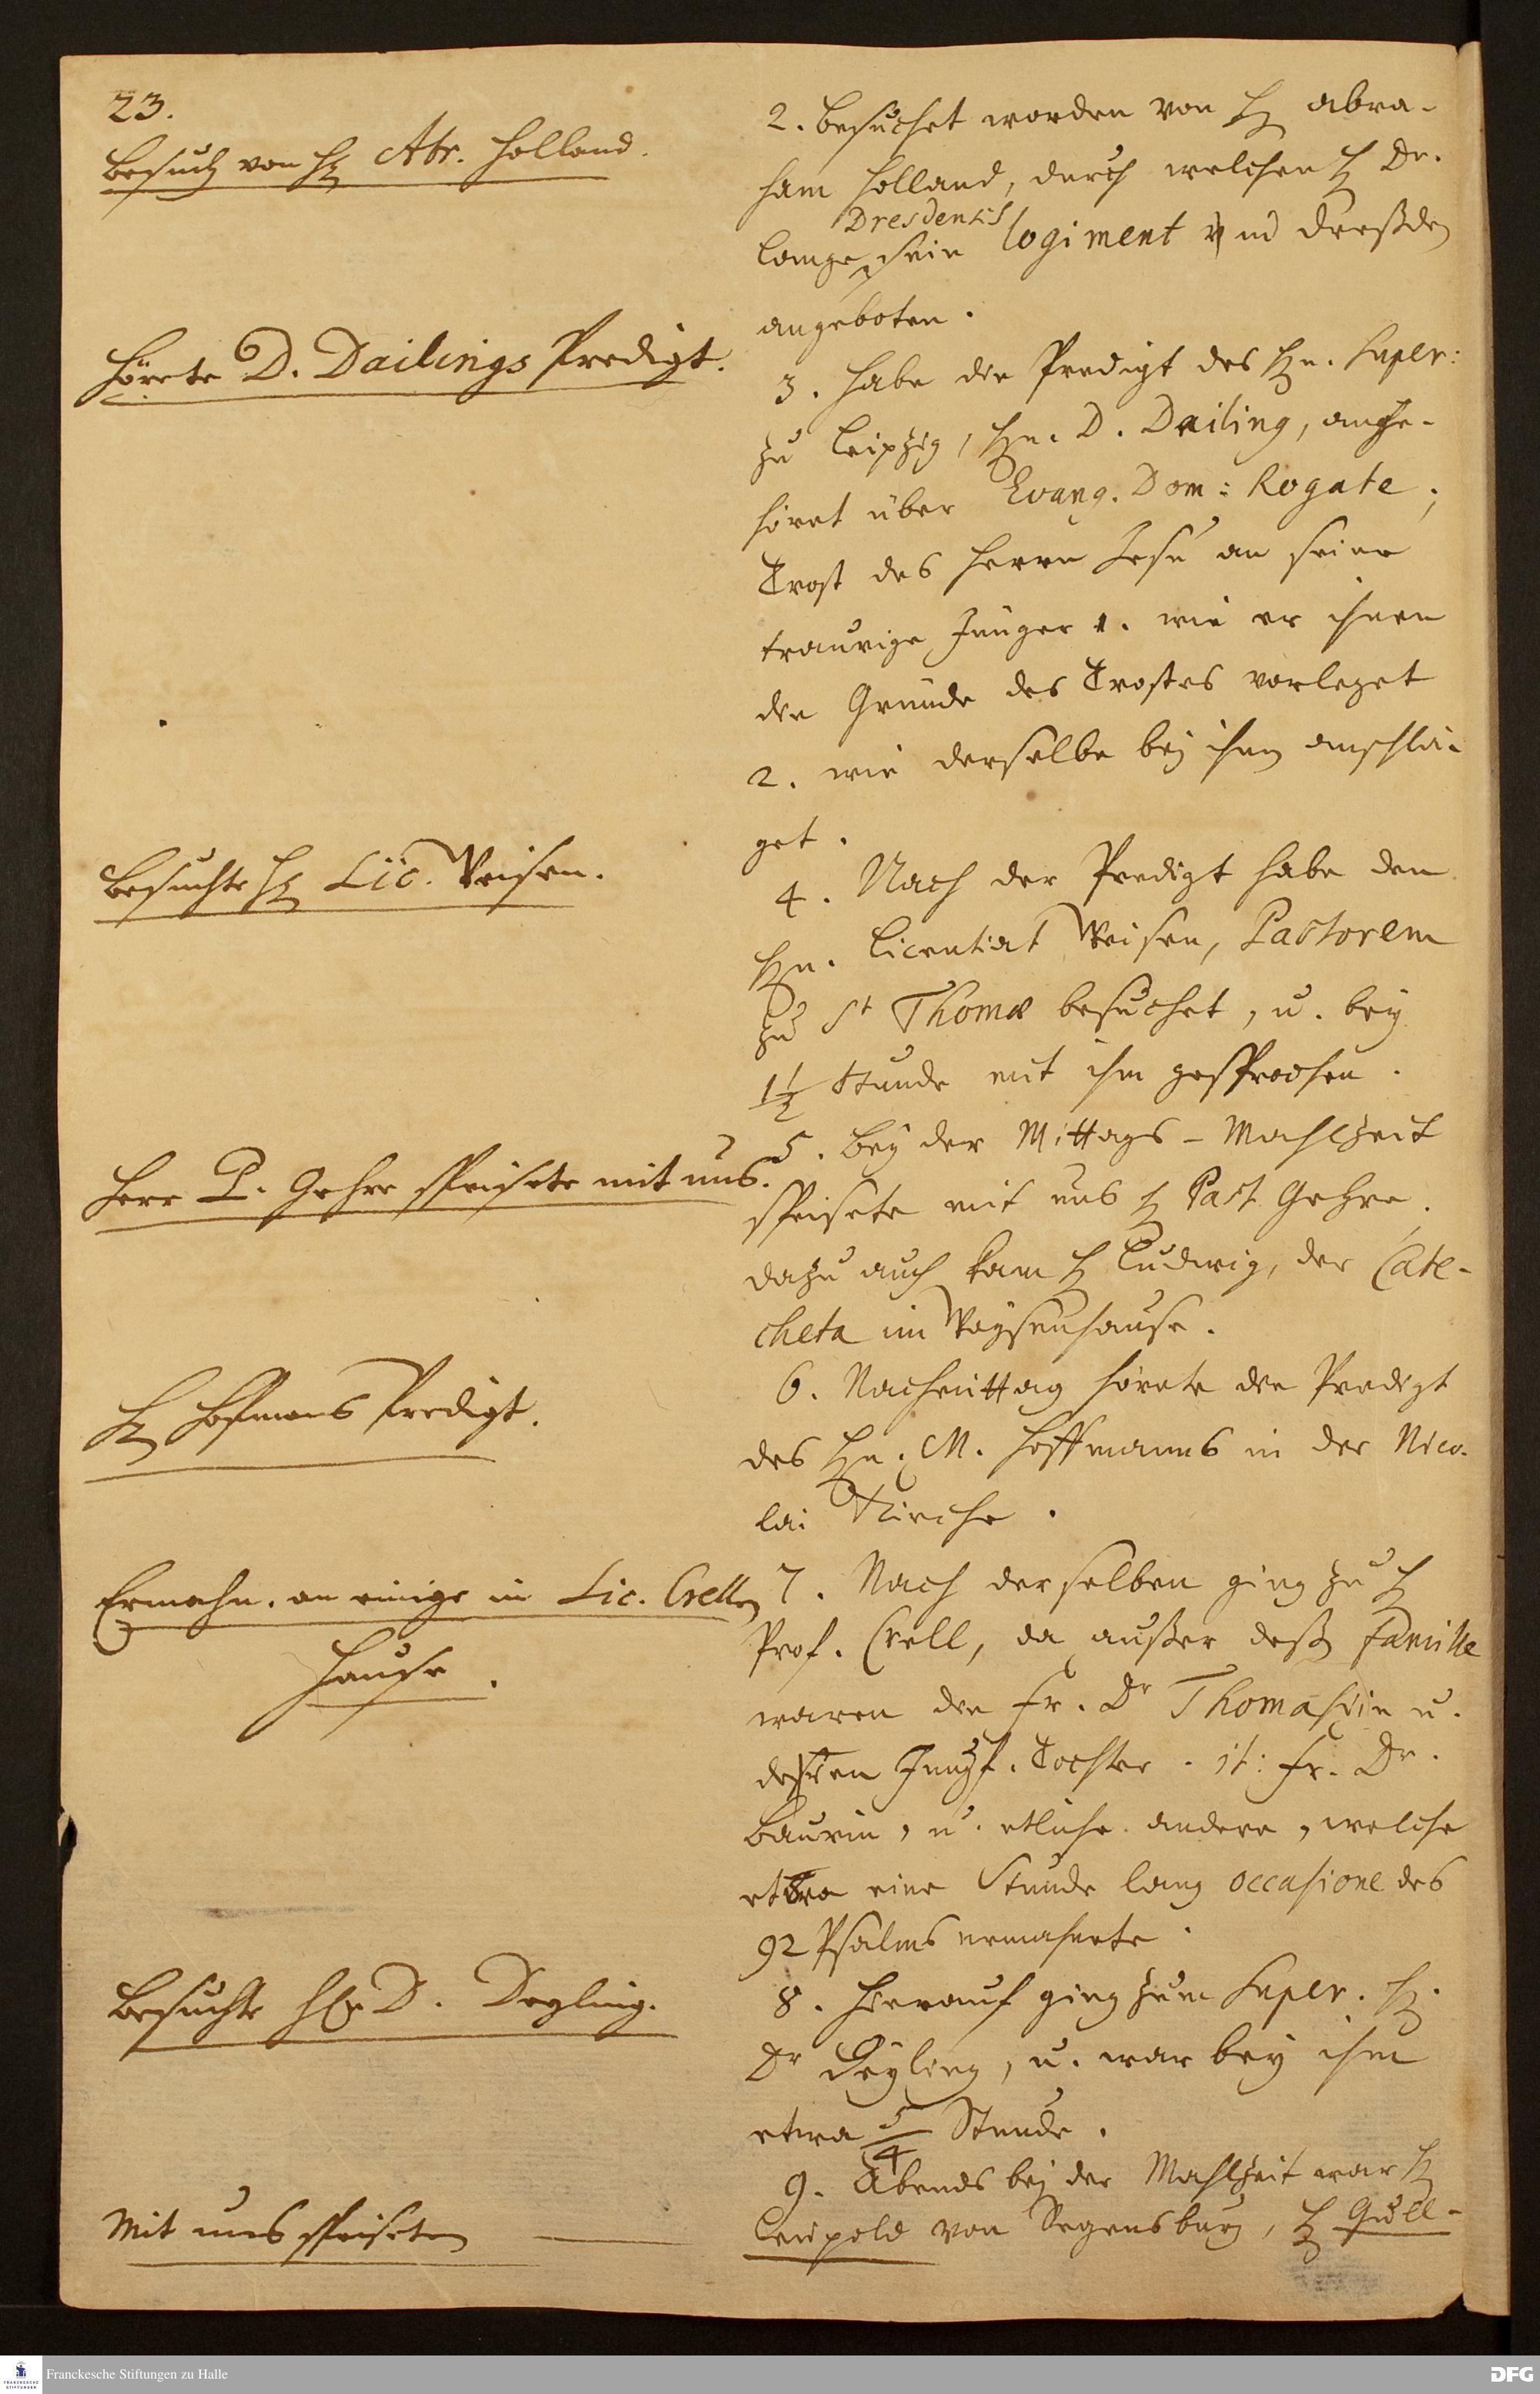 23.
Besuch von H. Abr. Holland.
2. Besuchet worden von H. Abra-
ham Holland, durch welchen H. Dr.
Lange sein Dresdensis logiment
angeboten.
Hörete D. Dailings Predigt.
3. Habe die Predigt des Hn. Super:
zu Leipzig, Hn. D. Dailing, ange-
höret über Evang. Dom: Rogate;
Trost des Herrn Jesu an seine
traurige Jünger 1. wie er ihnen
die Gründe des Trostes vorleget
2. wie derselbe bey ihnen anschlä-
get.
Besuchte H. Lic. Weisen.
4. Nach der Predigt habe den
Hn. Licentiat Weisen, Pastorem
zu St Thomæ besuchet, u. bey
1½ Stunde mit ihm gesprochen.
Herr P. Gehre speisete mit uns.
5. Bey der Mittags-Mahlzeit
speisete mit uns H. Past. Gehre.
dazu auch kam H. Ludwig, der Cate-
cheta im Waysenhause.
H. Hofmans Predigt.
6. Nachmittag hörete die Predigt
des Hn. M. Hoffmanns in der Nico-
lai Kirche.
Ermahn. an einige in Lic. Crellen
Hause.
7. Nach derselben ging zu H.
Prof. Crell, da außer deß familie
waren die Fr. Dr Thomasiin u.
dessen Jungf. Tochter. it: Fr. Dr.
Baurin, u. etliche andere, welche
etwa eine Stunde lang occasione des
92 Psalms ermahnete.
Besuchte H. D. Deyling.
8. Hierauf ging zum Super. H.
Dr Deyling, u. war bey ihm
etwa 5/4 Stunde.
Mit uns speiseten
9. Abends bey der Mahlzeit war H.
Leupold von Regensburg, H. Güll-
Franckesche Stiftungen zu Halle
DFG